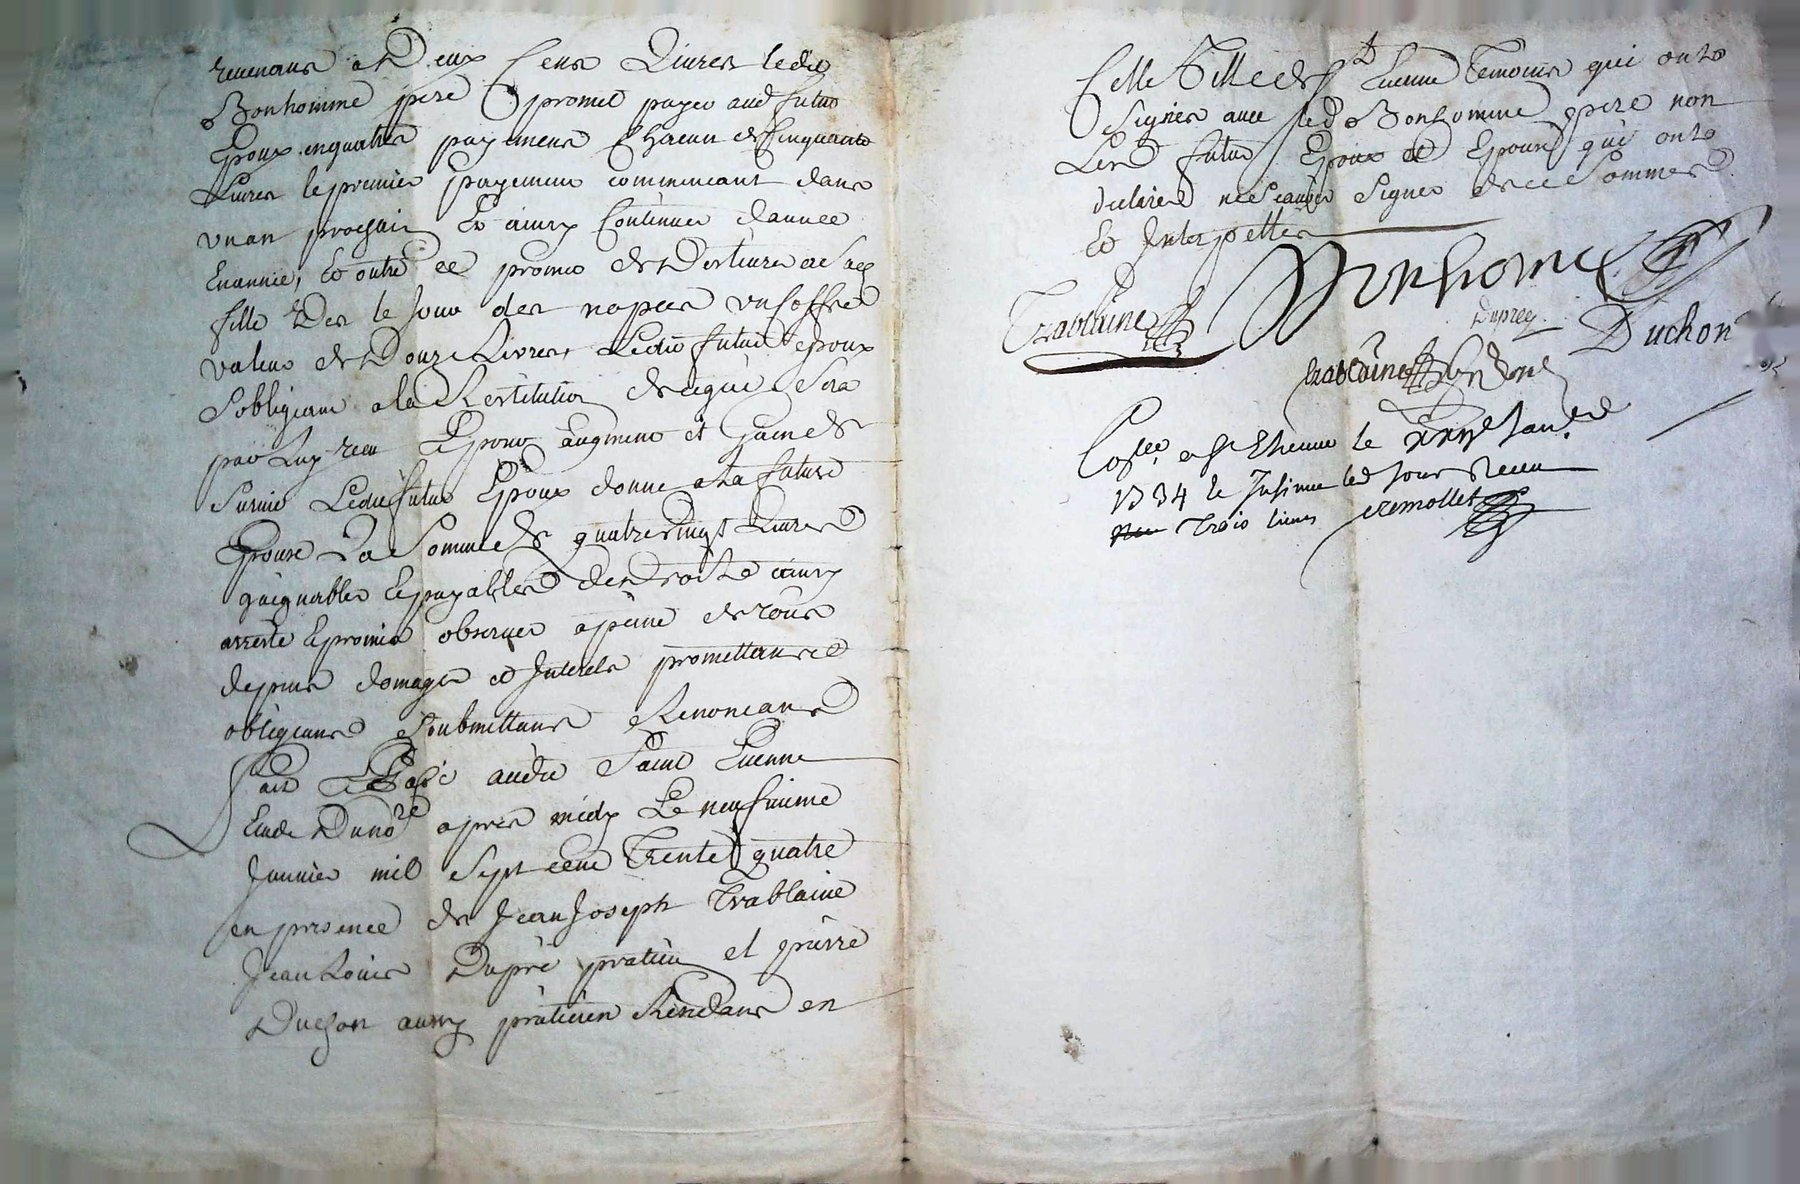 revenans a Deux Cens Livres ledit
Bonhomme pere promet payer aud futur
Epoux enquatre payemens Chacun de Cinquante
Livres le premier payement commencant dans
un an prochain Et ainsy Continuer dannée
Enannée, Et outre ce promis de Vestir sa
fille Des le Jour des nopces un Coffre
valeur de Douze Livres Ledit futur epoux
Sobligeant ala Restitution de ce qui Sera
par Luy receu Et pour augment et gain de
Survie Ledit futur Epoux donne ala future
Epouse La Somme de quatre vingt Livres
gaignables Et payables de Droit Le ainsy
arresté Et promis observer apeine de tous
depens domages et Interets promettans
obligeans Soubmettans Renoncans
fait Et Passé audit Saint Etienne
Etude Du nore apres midy Le neufvieme
Janvier mil Sept cent Trente quatre
en presence de Jean Joseph Trablaine
Jean Louis Dupré praticien et pierre
Duchon aussy praticien Residans en
Cette Ville de St Etienne Temoins qui ont
Signés avec led Bonhomme pere non
Lesd futur Epoux et Epouse qui ont
declaré ne Scavoir Signer de ce Sommés
Et Interpellés
Bonhome
Trablaine
Duprey
Duchon
Trablaine
Collé a St Etienne le Janer
1734 le Insinué led Jour Receu
Trois livres